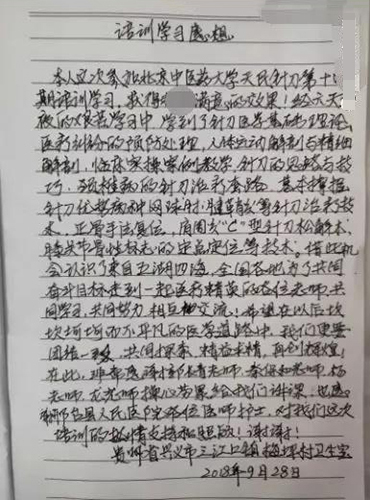 培训学习感想
本人这次参加北京中医药大学天民针刀第十
期培训学习，获得满意的效果！经六天
夜的艰苦学习中，学到了针刀医学基础理论，
医疗纠纷的预防处理，人体运动解剖与精细
解剖，临床实操案例教学，针刀的思路与技
巧，颈椎病的针刀治疗套路，基本掌握
针刀优势病种网球肘，腱鞘炎等针刀治疗技
术，正骨手法复位，肩周炎"C"型针刀松解术，
膝关节骨性标志的定点定位等技术。借此机
会认识了来自五湖四海，全国各地为了共同
奋斗目标走到一起医疗精英的各位老师，共
同学习，共同努力，相互交流！希望在以后坎
坎坷坷而不平凡的医学道路中，我们更要
团结一致，共同探索，精益求精，再创辉煌！
在此，非常感谢老师，秦保和老师，杨
老师，龙老师操心劳累给我们讲课，也感
县人民医院各位医师护士，对我们这次
培训的热情支持和照顾！谢谢！
贵州省兴义市三江口镇梅坪村卫生室
2018年9月28日